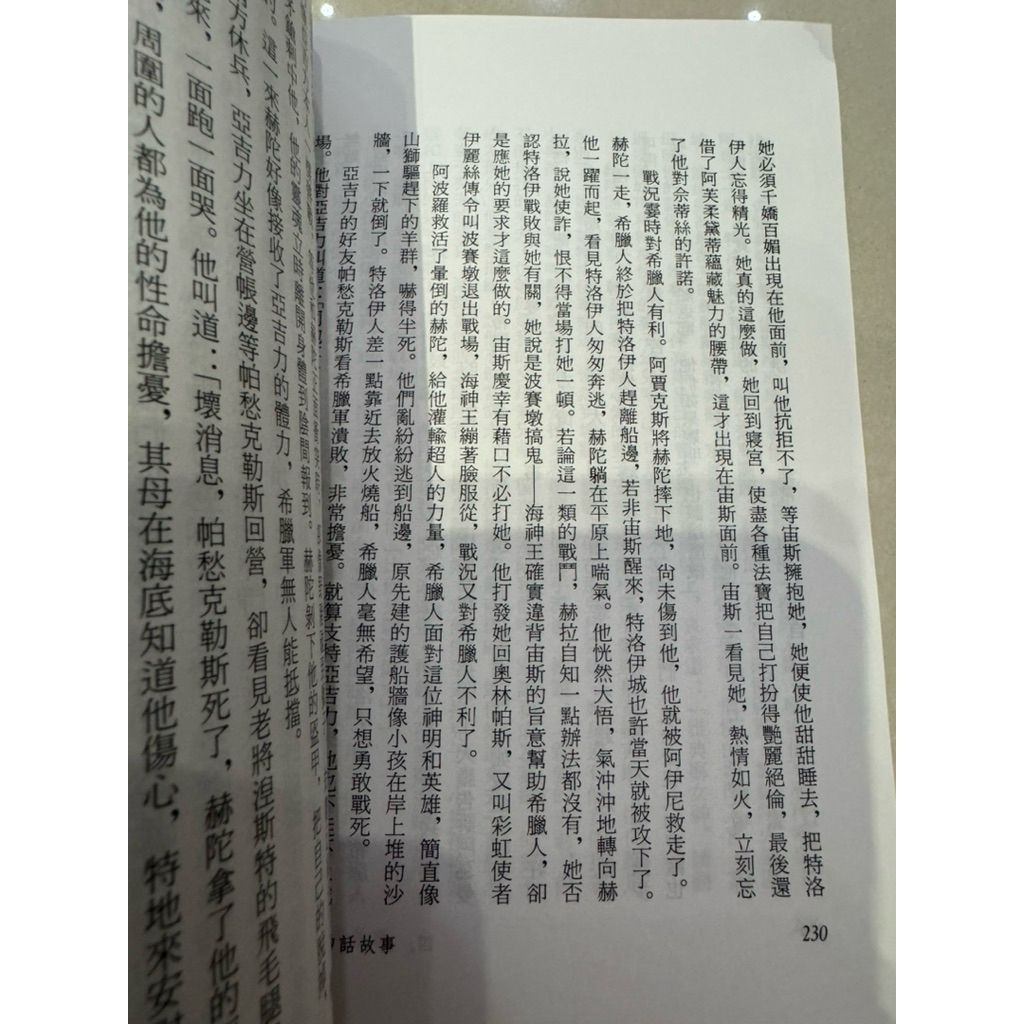 她必須千嬌百媚出現在他面前，叫他抗拒不了，等宙斯擁抱她，她便使他甜甜睡去，把特洛
伊人忘得精光。她真的這麼做，她回到寢宮，使盡各種法寶把自己打扮得艷麗絕倫，最後還
借了阿芙柔黛蒂蘊藏魅力的腰帶，這才出現在宙斯面前。宙斯一看見她，熱情如火，立刻忘
了他對佘蒂絲的許諾。
戰況霎時對希臘人有利。阿賈克斯將赫陀摔下地，尚未傷到他，他就被阿伊尼救走了。
赫陀一走，希臘人終於把特洛伊人趕離船邊，若非宙斯醒來，特洛伊城也許當天就被攻下了。
他一躍而起，看見特洛伊人匆匆奔逃，赫陀躺在平原上喘氣。他恍然大悟，氣沖沖地轉向赫
拉，說她使詐，恨不得當場打她一頓。若論這一類的戰鬥，赫拉自知一點辦法都沒有，她否
認特洛伊戰敗與她有關，她說是波賽墩搞鬼——海神王確實違背宙斯的旨意幫助希臘人，卻
是應她的要求才這麼做的。宙斯慶幸有藉口不必打她。他打發她回奧林帕斯，又叫彩虹使者
伊麗絲傳令叫波賽墩退出戰場，海神王繃著臉服從，戰況又對希臘人不利了。
阿波羅救活了暈倒的赫陀，給他灌輸超人的力量，希臘人面對這位神明和英雄，簡直像
山獅驅趕下的羊群，嚇得半死。他們亂紛紛逃到船邊，原先建的護船牆像小孩在岸上堆的沙
牆，一下就倒了。特洛伊人差一點靠近去放火燒船，希臘人毫無希望，只想勇敢戰死。
亞吉力的好友帕愁克勒斯看希臘軍潰敗，非常擔憂。就算支持亞吉力，他也不
場。他對亞吉力叫道
230
話故事
他的靈魂立時離開身體到陰間報到。赫陀剝下他的盔甲，把自己的
這一來赫陀好像接收了亞吉力的體力，希臘軍無人能抵擋。
方休兵，亞吉力坐在營帳邊等帕愁克勒斯回營，卻看見老將涅斯特的飛毛腿
來，一面跑一面哭。他叫道：「壞消息，帕愁克勒斯死了，赫陀拿了他的
，周圍的人都為他的性命擔憂，其母在海底知道他傷心，特地來安